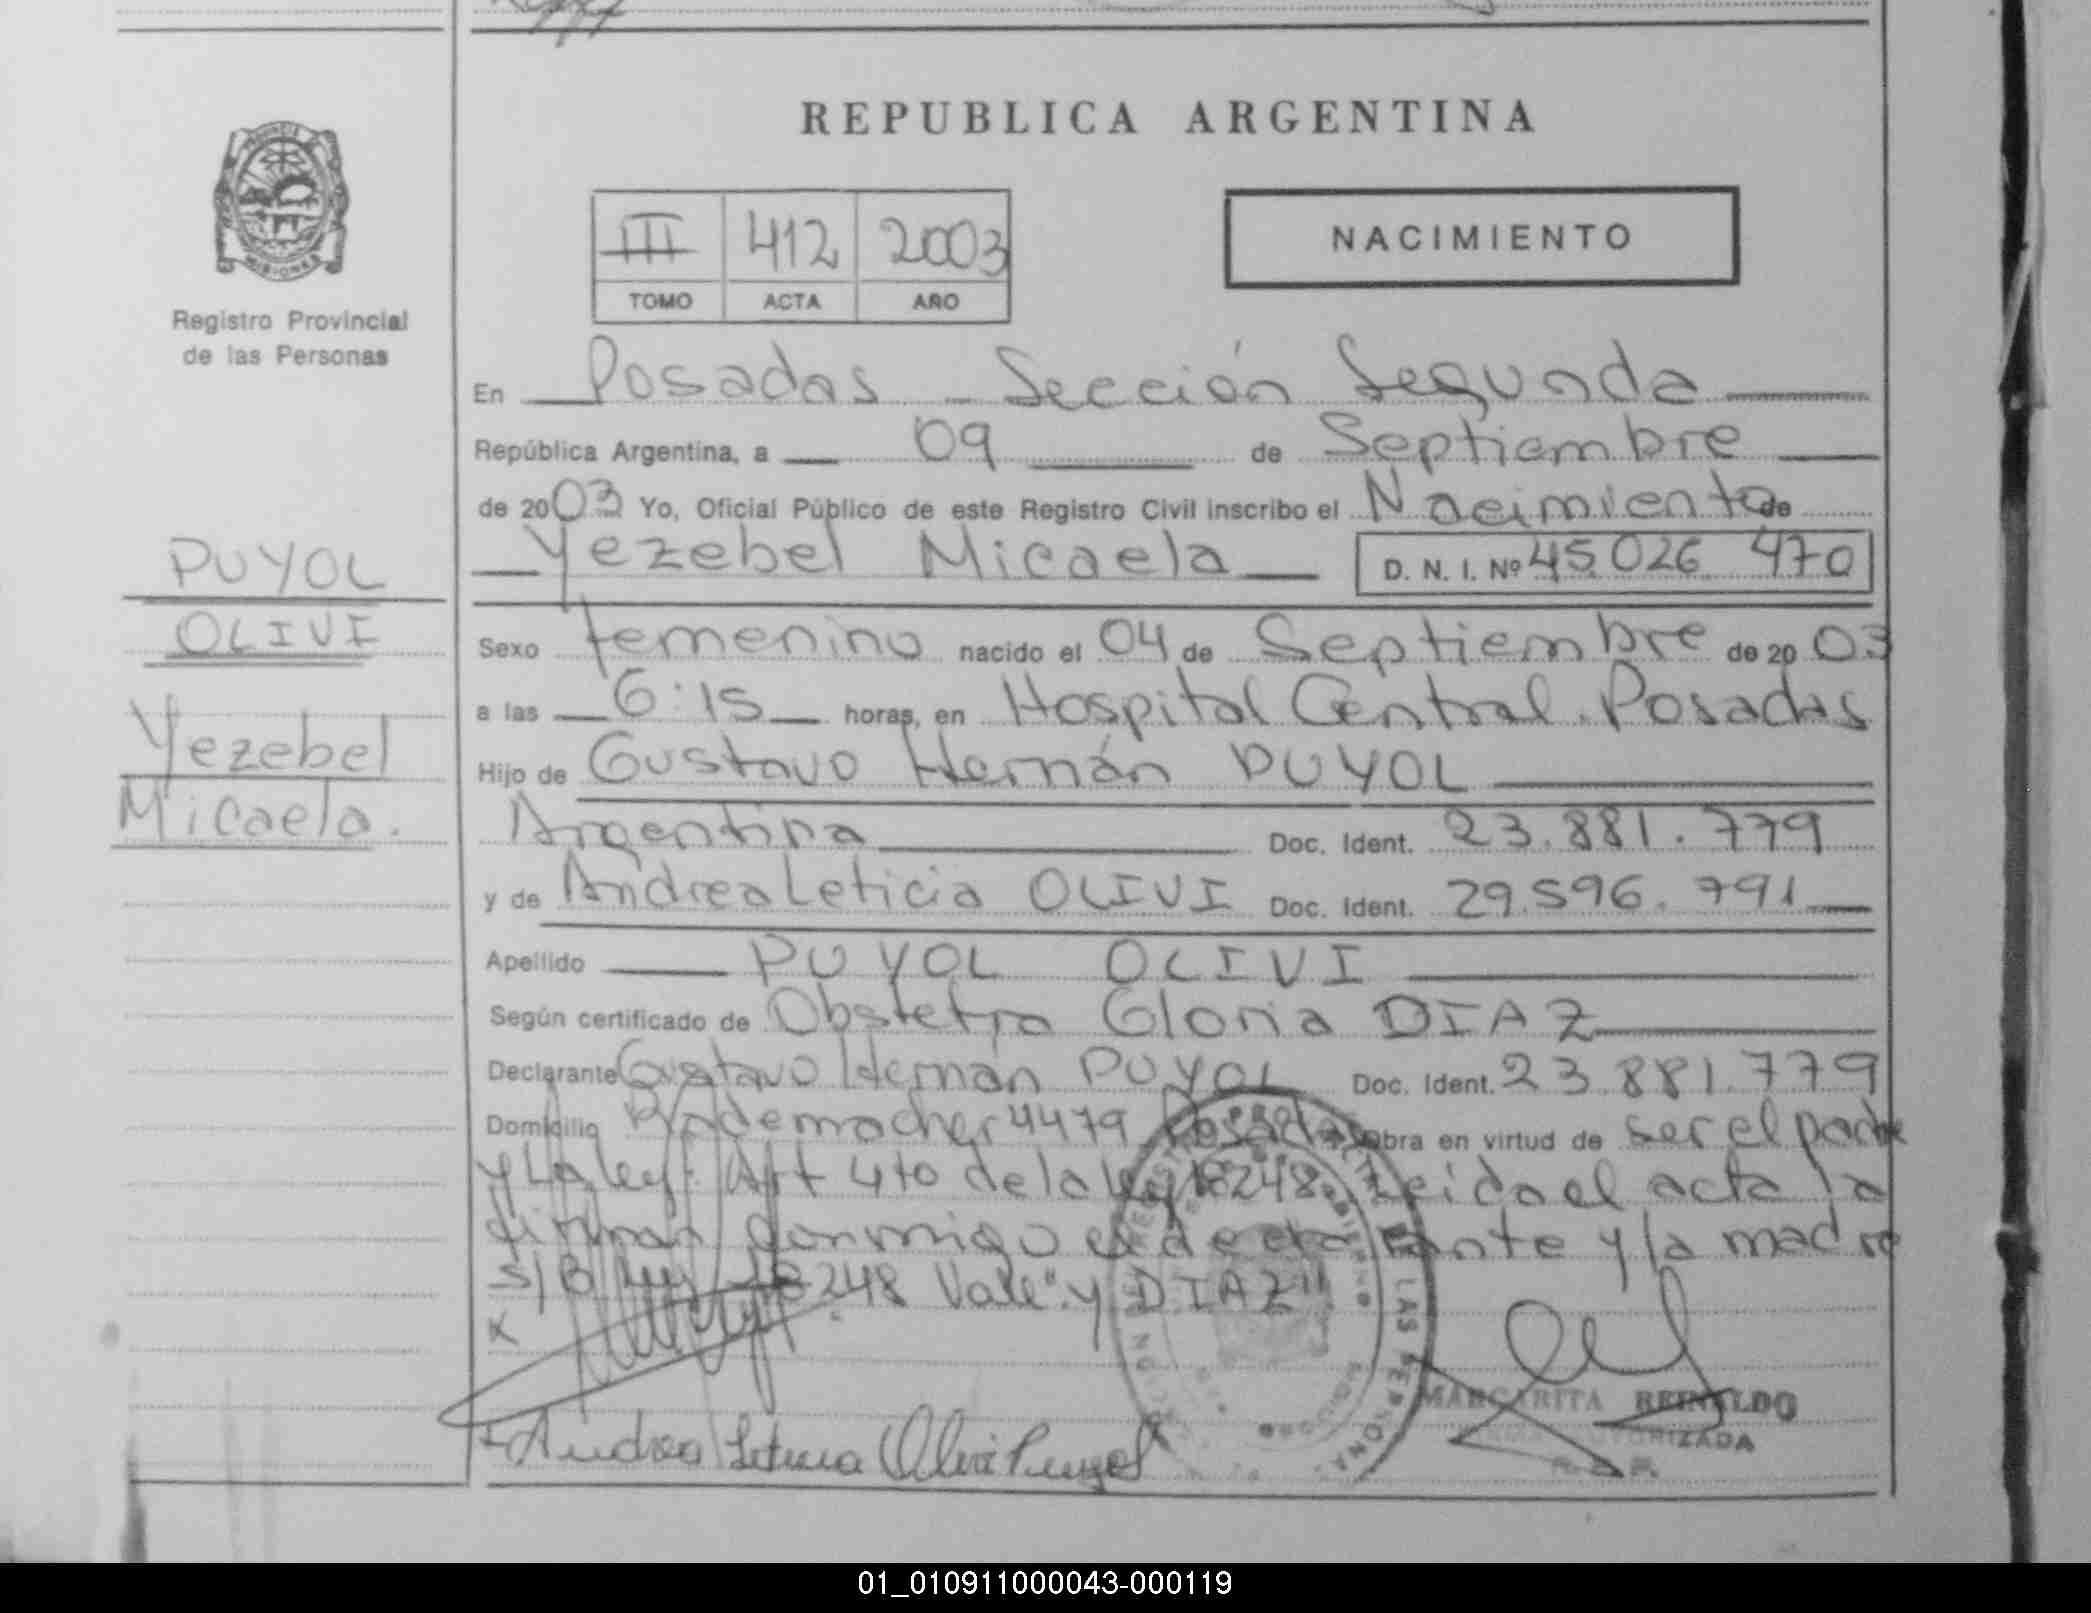 REPUBLICA ARGENTINA
PROVINCIA
MISIONES
Registro Provincial
de las Personas
III 412 2003
TOMO ACTA AÑO
NACIMIENTO
En Posadas - Sección Segunda
República Argentina, a 09 de Septiembre
de 2003 Yo, Oficial Público de este Registro Civil inscribo el Nacimiento de
Yezebel Micaela D. N. I. Nº 45.026.470
PUYOL
OLIVI
Yezebel
Micaela.
Sexo femenino nacido el 04 de Septiembre de 2003
a las 6:15 horas, en Hospital Central. Posadas
Hijo de Gustavo Hernán PUYOL
Argentina Doc. Ident. 23.881.779
y de Andrea Leticia OLIVI Doc. Ident. 29.596.791
Apellido PUYOL OLIVI
Según certificado de Obstetra Gloria DIAZ
Declarante Gustavo Hernán PUYOL Doc. Ident. 23.881.779
Domicilio Rademacher 4479 Posadas Obra en virtud de ser el padre
y La ley: Art 4to de la ley 18248. Leida el acta la
firman conmigo el declarante y la madre
S/B 18248 Vale "y DIAZ"
x
Andrea Leticia Olivi Puyol
LAS PERSONAS
MARGARITA REINALDO
FIRMA AUTORIZADA
01_010911000043-000119